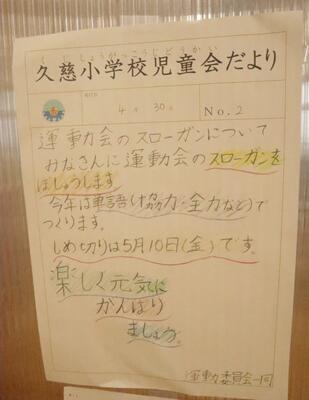 しょうがっこうじどうかい
久慈小学校児童会だより
4月30日
No.2
運動会のスローガンについて
みなさんに運動会のスローガンを
ぼしゅうします
今年は単語(協力・全力など)で
つくります。
しめ切りは5月10日(金)です。
楽しく元気に
がんばり
ましょう。
運動委員会一同